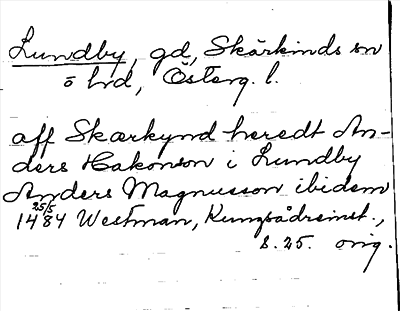 Lundby, gd, Skärkinds sn
o hd, Österg. l.
aff Skærkynd heredt An-
ders Hakonson i Lundby
Anders Magnusson ibidem
25/5
1484 Westman, Kungsådreinst.,
s. 25. orig.